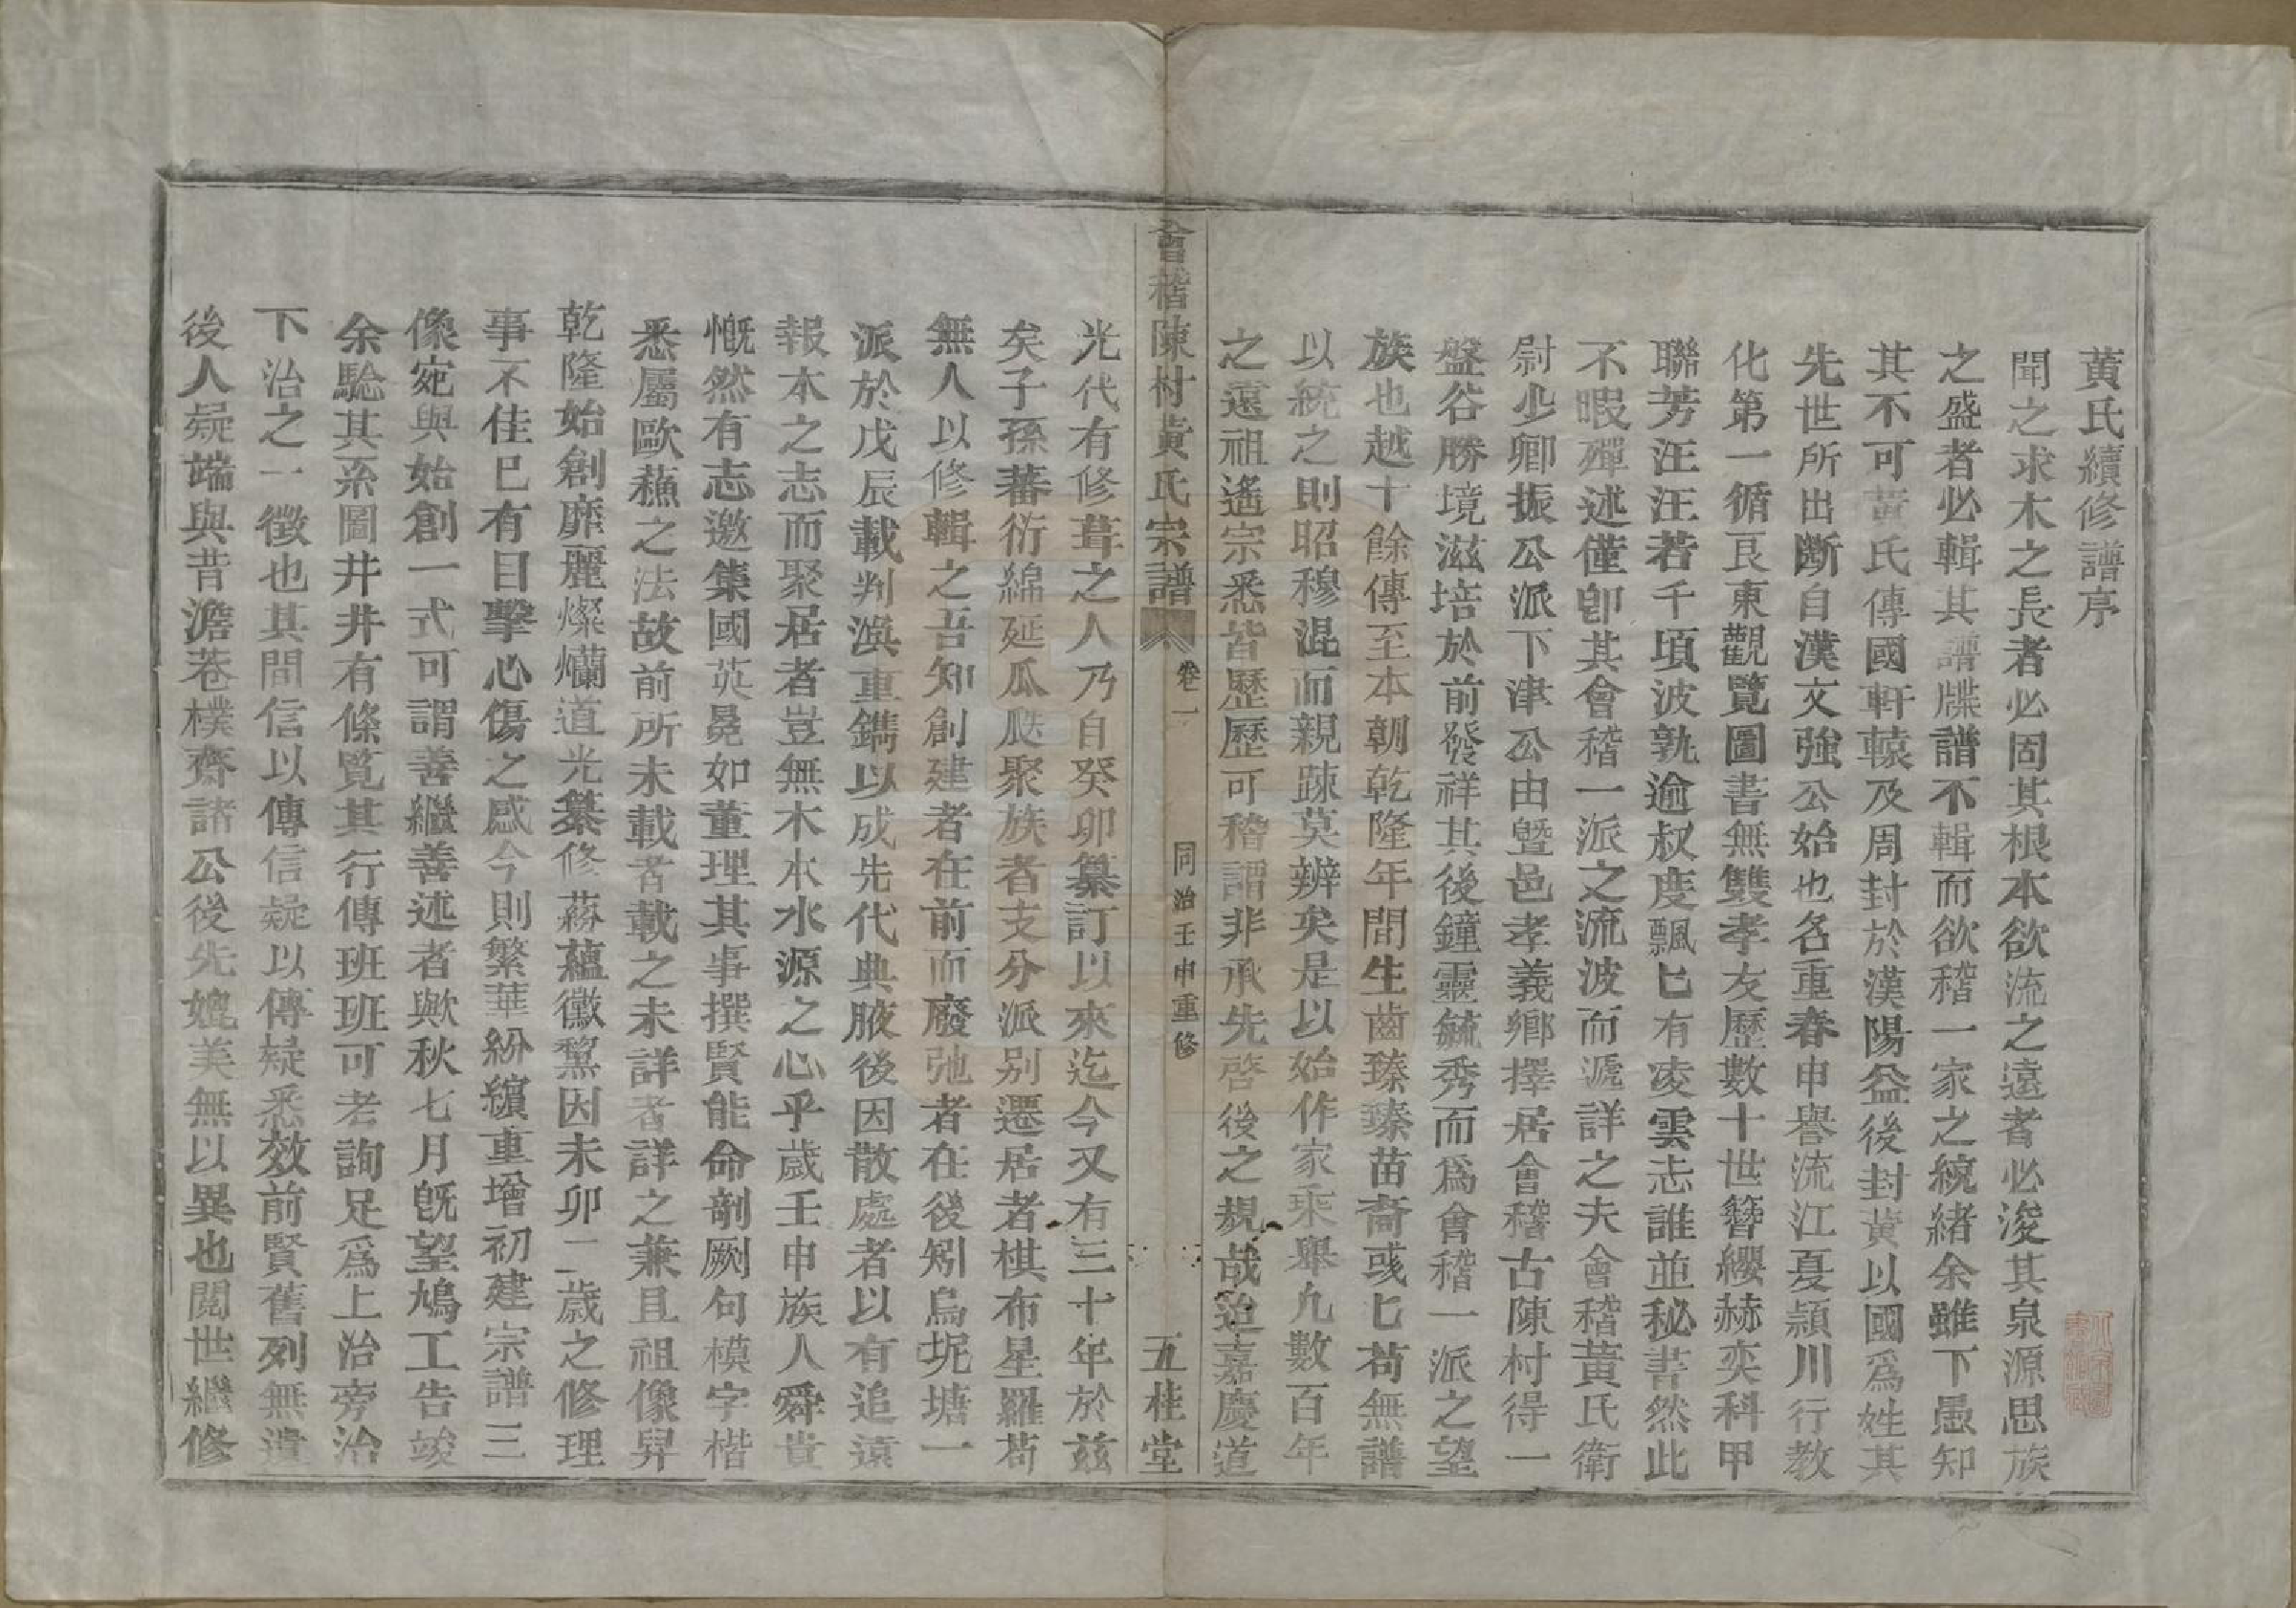 黃氏續修譜序
聞之求木之長者必固其根本欲流之遠者必浚其泉源思族
之盛者必輯其譜牒譜不輯而欲稽一家之統緒余雖下愚知
其不可黃氏傳國軒轅及周封於漢陽益後封黃以國爲姓其
先世所出斷自漢文強公始也名重春申譽流江夏潁川行教
化第一循良東觀覽圖書無雙孝友歷數十世簪纓赫奕科甲
聯芳汪汪若千頃波孰逾叔度飄飄有凌雲志誰並秘書然此
不暇殫述僅卽其會稽一派之流波而遞詳之夫會稽黃氏衛
尉少卿振公派下津公由曁邑孝義鄉擇居會稽古陳村得一
盤谷勝境滋培於前發祥其後鐘靈毓秀而爲會稽一派之望
族也越十餘傳至本朝乾隆年間生齒臻臻苗裔彧彧苟無譜
以統之則昭穆混而親踈莫辨矣是以始作家乘舉九數百年
之遠祖遙宗悉皆歷歷可稽謂非承先啓後之規哉迨嘉慶道
會稽陳村黃氏宗譜 卷一 同治壬申重修 五桂堂
光代有修葺之人乃自癸卯纂訂以來迄今又有三十年於茲
矣子孫蕃衍綿延瓜瓞聚族者支分派別遷居者棋布星羅苟
無人以修輯之吾知創建者在前而廢弛者在後矧烏坭塘一
派於戊辰載判渙重鐫以成先代典腋後因散處者以有追遠
報本之志而聚居者豈無木本水源之心乎歲壬申族人舜貴
慨然有志邀集國英冕如董理其事撰賢能命剞劂句模字楷
悉屬歐蘓之法故前所未載者載之未詳者詳之兼且祖像昇
乾隆始創靡麗燦爛道光纂修蓊蘊黴黧因未卯二歲之修理
事不佳已有目擊心傷之感今則繁華紛繽重增初建宗譜三
像宛與始創一式可謂善繼善述者歟秋七月旣望鳩工告竣
余驗其系圖井井有條覽其行傳班班可考詢足爲上治旁治
下治之一徵也其間信以傳信疑以傳疑悉效前賢舊列無遺
後人疑端與昔澹菴樸齋諸公後先媲美無以異也閱世繼修